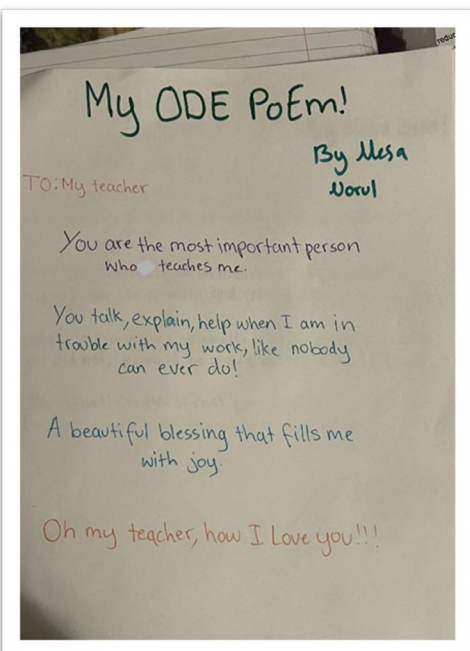 reduc
My ODE PoEm!
By Mesa
Norul
TO: My teacher
You are the most important person
who teaches me.
You talk, explain, help when I am in
trouble with my work, like nobody
can ever do!
A beautiful blessing that fills me
with joy.
Oh my teacher, how I Love you!!!